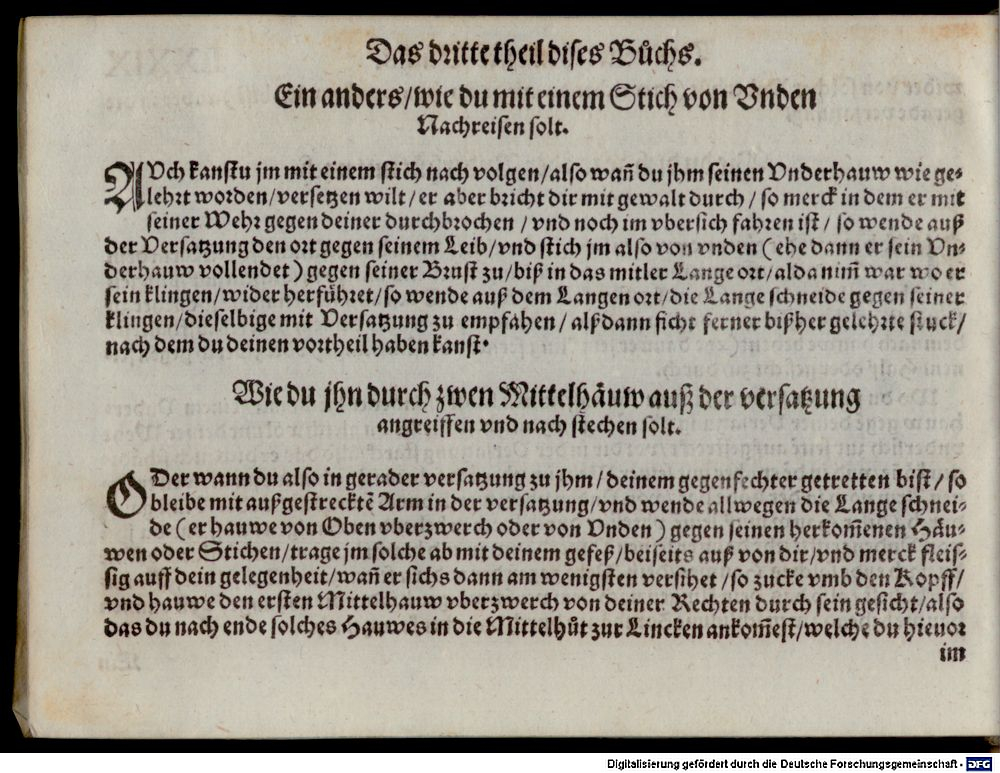 Das dritte theil dises Bůchs.
Ein anders/wie du mit einem Stich von Vnden
Nachreisen solt.
AVch kanstu jm mit einem stich nach volgen/also wañ du jhm seinen Vnderhauw wie ge-
lehrt worden/versetzen wilt/er aber bricht dir mit gewalt durch/so merck in dem er mit
seiner Wehr gegen deiner durchbrochen/vnd noch im vbersich fahren ist/so wende auß
der Versatzung den ort gegen seinem Leib/vnd stich jm also von vnden (ehe dann er sein Vn-
derhauw vollendet) gegen seiner Brust zu/biß in das mitler Lange ort/alda nim̃ war wo er
sein klingen/wider herführet/so wende auß dem Langen ort/die Lange schneide gegen seiner
klingen/dieselbige mit Versatzung zu empfahen/alß dann ficht ferner bißher gelehrte stuck/
nach dem du deinen vortheil haben kanst.
Wie du jhn durch zwen Mittelhäuw auß der versatzung
angreiffen vnd nach stechen solt.
ODer wann du also in gerader versatzung zu jhm/deinem gegenfechter getretten bist/so
bleibe mit außgestrecktẽ Arm in der versatzung/vnd wende allwegen die Lange schnei-
de (er hauwe von Oben vberzwerch oder von Vnden) gegen seinen herkom̃enen Häu-
wen oder Stichen/trage jm solche ab mit deinem gefeß/beiseits auß von dir/vnd merck fleis-
sig auff dein gelegenheit/wañ er sichs dann am wenigsten versihet/so zucke vmb den Kopff/
vnd hauwe den ersten Mittelhauw vberzwerch von deiner Rechten durch sein gesicht/also
das du nach ende solches Hauwes in die Mittelhůt zur Lincken ankom̃est/welche du hieuor
im
Digitalisierung gefördert durch die Deutsche Forschungsgemeinschaft - DFG